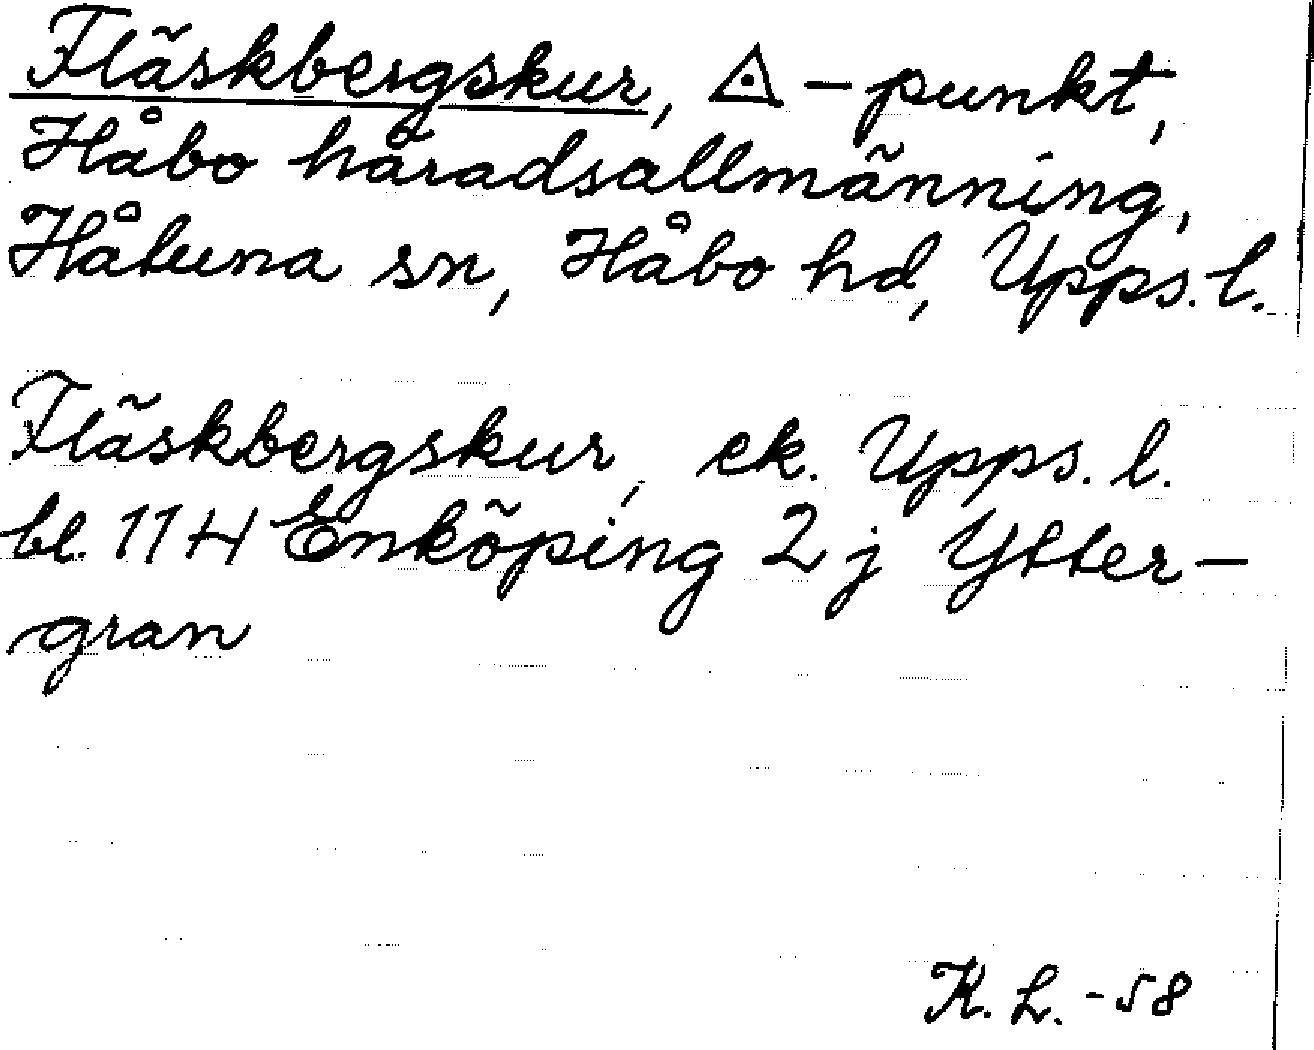 Fläskbergskur, ◬-punkt,
Håbo häradsallmänning,
Håtuna sn, Håbo hd, Upps. l.
Fläskbergskur, ek. Upps. l.
bl. 11H Enköping 2j Ytter-
gran
K. L. -58